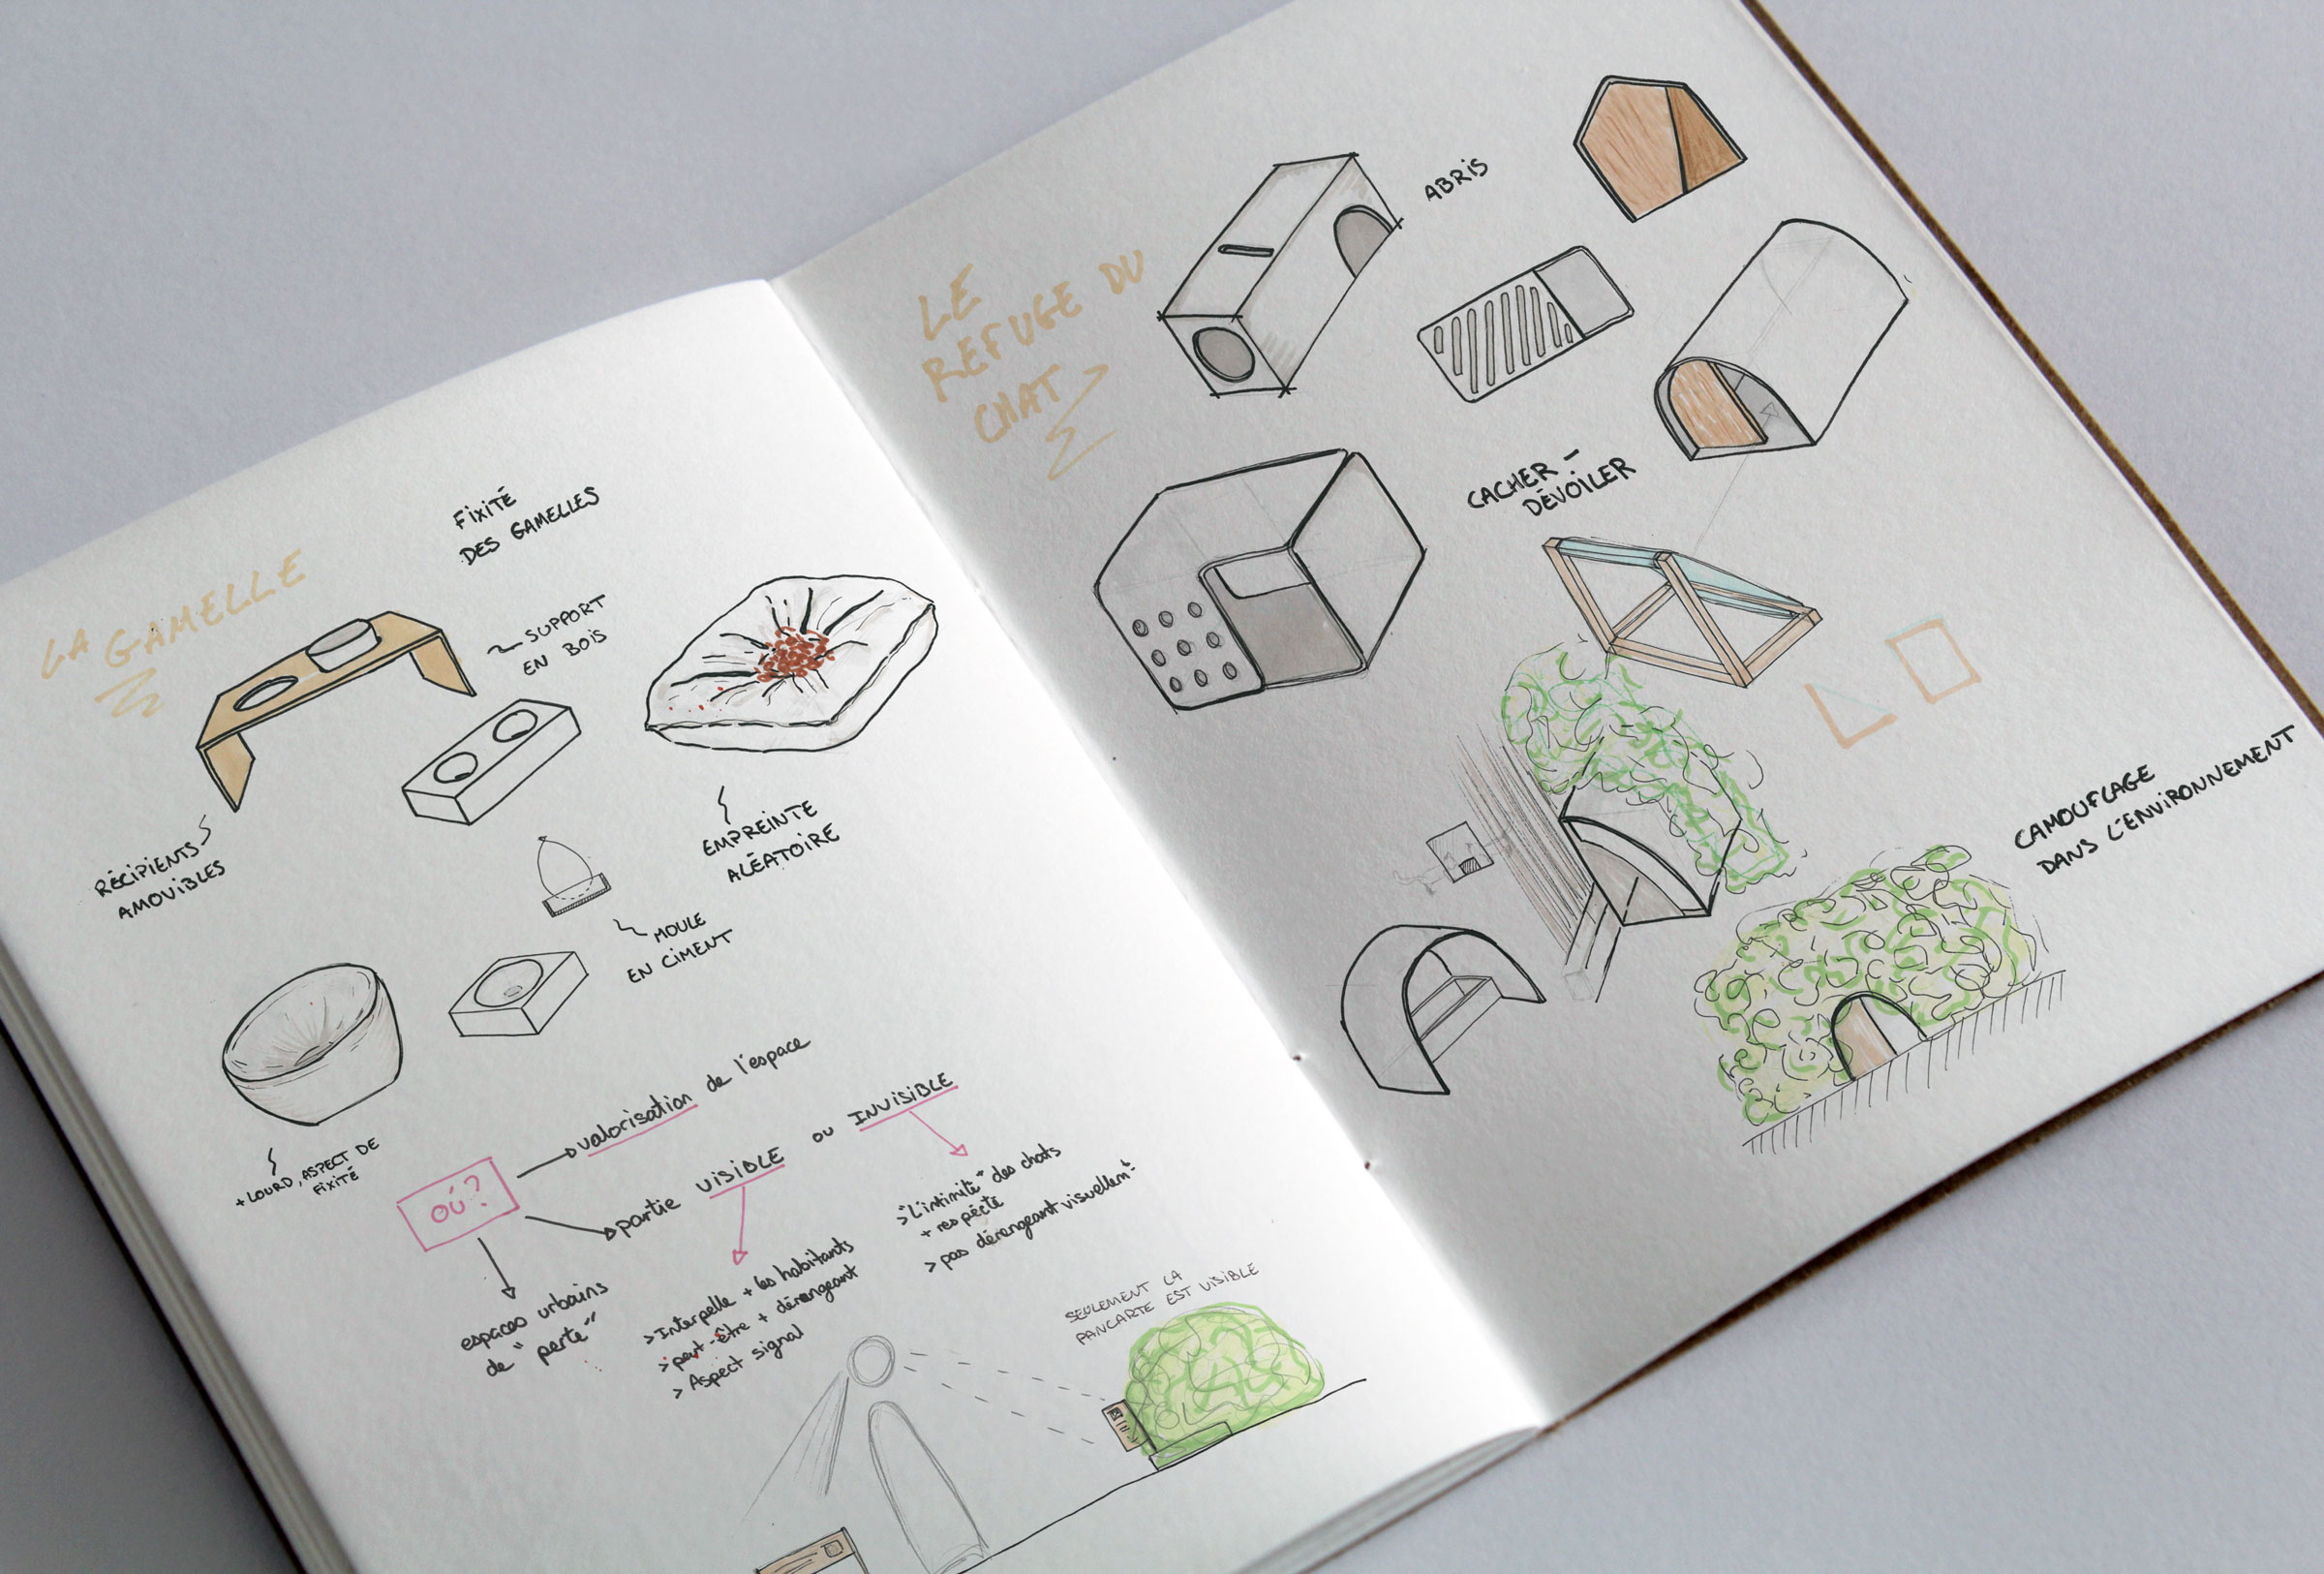 LA GAMELLE
FIXITÉ
DES GAMELLES
SUPPORT
EN BOIS
RÉCIPIENTS
AMOVIBLES
EMPREINTE
ALÉATOIRE
MOULE
EN CIMENT
+ LOURD, ASPECT DE
FIXITÉ
OÙ?
valorisation de l'espace
partie VISIBLE ou INVISIBLE
espaces urbains
de "perte"
> Interpelle + les habitants
> peut-être + dérangeant
> Aspect signal
> "L'intimité" des chats
+ respecté
> pas dérangeant visuellemt
SEULEMENT LA
PANCARTE EST VISIBLE
LE
REFUGE DU
CHAT
ABRIS
CACHER -
DÉVOILER
CAMOUFLAGE
DANS L'ENVIRONNEMENT